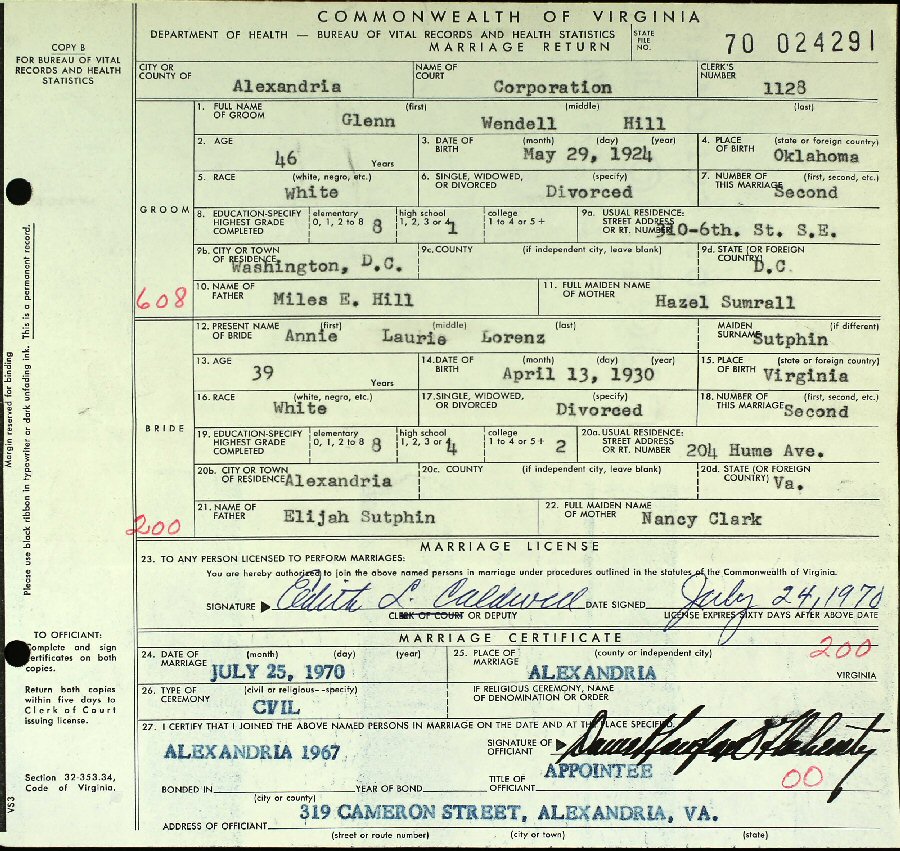 COMMONWEALTH OF VIRGINIA
DEPARTMENT OF HEALTH — BUREAU OF VITAL RECORDS AND HEALTH STATISTICS
MARRIAGE RETURN
STATE FILE NO. 70 024291
COPY B
FOR BUREAU OF VITAL
RECORDS AND HEALTH
STATISTICS
CITY OR COUNTY OF Alexandria NAME OF COURT Corporation CLERK'S NUMBER 1128
GROOM
1. FULL NAME OF GROOM (first) Glenn (middle) Wendell (last) Hill
2. AGE 46 Years 3. DATE OF BIRTH (month) (day) (year) May 29, 1924 4. PLACE OF BIRTH (state or foreign country) Oklahoma
5. RACE (white, negro, etc.) White 6. SINGLE, WIDOWED, OR DIVORCED (specify) Divorced 7. NUMBER OF THIS MARRIAGE (first, second, etc.) Second
8. EDUCATION-SPECIFY HIGHEST GRADE COMPLETED elementary 0, 1, 2 to 8 8 high school 1, 2, 3 or 4 1 college 1 to 4 or 5 + 9a. USUAL RESIDENCE: STREET ADDRESS OR RT. NUMBER 10-6th. St. S.E.
9b. CITY OR TOWN OF RESIDENCE Washington, D.C. 9c. COUNTY (if independent city, leave blank) 9d. STATE (OR FOREIGN COUNTRY) D.C
608
10. NAME OF FATHER Miles E. Hill 11. FULL MAIDEN NAME OF MOTHER Hazel Sumrall
BRIDE
12. PRESENT NAME OF BRIDE (first) Annie (middle) Laurie (last) Lorenz MAIDEN SURNAME (if different) Sutphin
13. AGE 39 Years 14. DATE OF BIRTH (month) (day) (year) April 13, 1930 15. PLACE OF BIRTH (state or foreign country) Virginia
16. RACE (white, negro, etc.) White 17. SINGLE, WIDOWED, OR DIVORCED (specify) Divorced 18. NUMBER OF THIS MARRIAGE (first, second, etc.) Second
19. EDUCATION-SPECIFY HIGHEST GRADE COMPLETED elementary 0, 1, 2 to 8 8 high school 1, 2, 3 or 4 4 college 1 to 4 or 5 + 2 20a. USUAL RESIDENCE: STREET ADDRESS OR RT. NUMBER 204 Hume Ave.
20b. CITY OR TOWN OF RESIDENCE Alexandria 20c. COUNTY (if independent city, leave blank) 20d. STATE (OR FOREIGN COUNTRY) Va.
200
21. NAME OF FATHER Elijah Sutphin 22. FULL MAIDEN NAME OF MOTHER Nancy Clark
MARRIAGE LICENSE
23. TO ANY PERSON LICENSED TO PERFORM MARRIAGES:
You are hereby authorized to join the above named persons in marriage under procedures outlined in the statutes of the Commonwealth of Virginia.
SIGNATURE Edith L. Caldwell DATE SIGNED July 24, 1970
CLERK OF COURT OR DEPUTY LICENSE EXPIRES SIXTY DAYS AFTER ABOVE DATE
MARRIAGE CERTIFICATE
24. DATE OF MARRIAGE (month) (day) (year) JULY 25, 1970 25. PLACE OF MARRIAGE (county or independent city) ALEXANDRIA VIRGINIA
200
26. TYPE OF CEREMONY (civil or religious--specify) CVIL IF RELIGIOUS CEREMONY, NAME OF DENOMINATION OR ORDER
27. I CERTIFY THAT I JOINED THE ABOVE NAMED PERSONS IN MARRIAGE ON THE DATE AND AT THE PLACE SPECIFIED.
ALEXANDRIA 1967 SIGNATURE OF OFFICIANT
BONDED IN (city or county) YEAR OF BOND TITLE OF OFFICIANT APPOINTEE
00
319 CAMERON STREET, ALEXANDRIA, VA.
ADDRESS OF OFFICIANT (street or route number) (city or town) (state)
Margin reserved for binding
Please use black ribbon in typewriter or dark unfading ink. This is a permanent record.
TO OFFICIANT:
Complete and sign
certificates on both
copies.
Return both copies
within five days to
Clerk of Court
issuing license.
Section 32-353.34,
Code of Virginia.
VS3